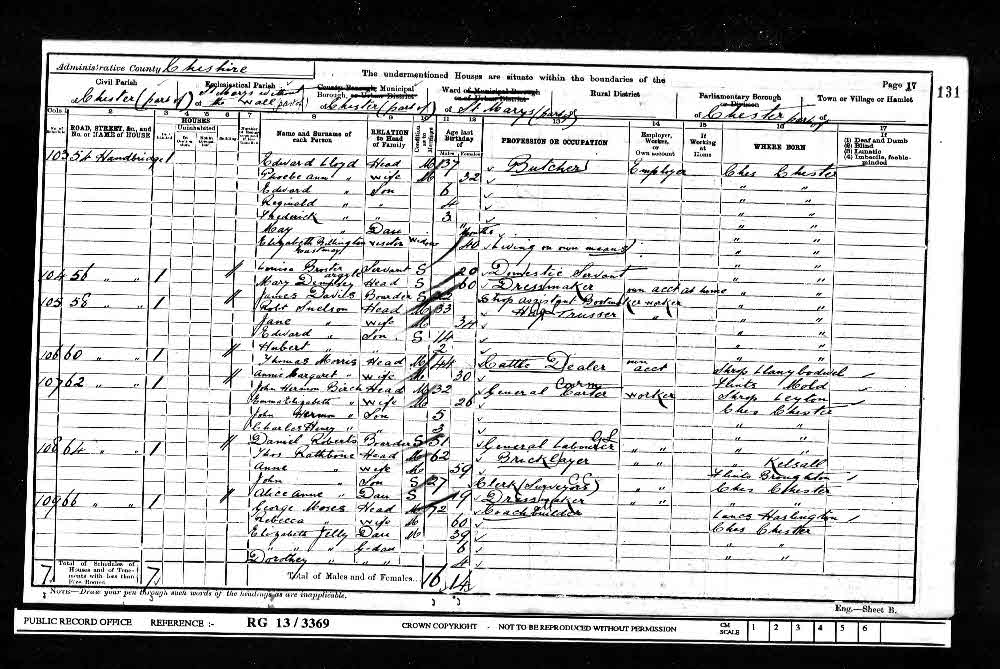 Administrative County Cheshire
The undermentioned Houses are situate within the boundaries of the
Page 17
131
Civil Parish
of Chester (part of)
Ecclesiastical Parish
of St Marys without the Wall (part of)
County Borough, Municipal Borough, or Urban District
of Chester (part of)
Ward of Municipal Borough or of Urban District
of St Marys (part of)
Rural District
Parliamentary Borough or Division
of Chester part of
Town or Village or Hamlet
Cols 1 2 3 4 5 6 7 8 9 10 11 12 13 14 15 16 17
ROAD, STREET, &c., and No. or NAME of HOUSE
HOUSES
Uninhabited
Name and Surname of each Person
RELATION to Head of Family
Condition as to Marriage
Age last Birthday of
Males Females
PROFESSION OR OCCUPATION
Employer, Worker, or Own account
If Working at Home
WHERE BORN
If (1) Deaf and Dumb (2) Blind (3) Lunatic (4) Imbecile, feeble-minded
103 54 Handbridge 1 Edward Lloyd Head M 37 Butcher Employer Ches Chester
Phoebe Ann " wife M 32 " "
Edward " Son 6 " "
Reginald " " 4 " "
Frederick " " 3 " "
May " Dau months " "
Elizabeth Billington visitor Widow 40 Living on own means " "
Louisa Servant S 20 Domestic Servant " "
104 56 " " 1 Mary Dempsey Head 60 Dressmaker own acct at home " "
James Davies Boarder S 22 Shop assistant worker " "
105 58 " " 1 Robt Snelson Head M 33 Hay Trusser " " "
Jane " wife M 34 " "
Edward " Son S 14 " "
Hubert " " 2 " "
106 60 " " 1 Thomas Morris Head M 44 Cattle Dealer own acct Shrop
Annie Margaret " wife M 30 Flints Mold
107 62 " " 1 John Hermon Birch Head M 32 General Carter Corm worker Shrop Leyton
Emma Elizabeth " Wife M 26 Ches Chester
John Hermon " Son 5 " "
Charles Henry " " 3 " "
Daniel Roberts Boarder S 51 General Labourer " " " "
108 64 " " 1 Thos Rathbone Head M 62 Bricklayer " " " Kelsall
Anne " wife M 59 Flints Broughton
John " Son S 27 Clerk (Surveyors) " " Ches Chester
Alice Anne " Dau S 19 Dressmaker " " " "
109 66 " " 1 George Moses Head M 72 Coachbuilder Lancs Haslington
Rebecca " wife M 60 Ches Chester
Elizabeth Jelly Dau M 39 " "
" " G-dau 6 " "
Dorothey " " " 4 " "
7 Total of Schedules of Houses and of Tenements with less than Five Rooms 7
Total of Males and of Females... 16 14
NOTE—Draw your pen through such words of the headings as are inapplicable.
Eng.—Sheet B.
PUBLIC RECORD OFFICE REFERENCE :- RG 13 / 3369 CROWN COPYRIGHT - NOT TO BE REPRODUCED WITHOUT PERMISSION CM SCALE 1 2 3 4 5 6